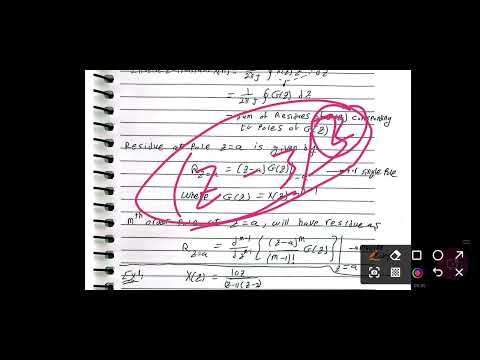 = 1/2πj ∮ G(z) dz
= sum of Residues of G(z) corresponding
to Poles of G(z)
Residue at Pole z=a is given by
R z=a = (z-a) G(z)| z=a single Pole
where G(z) = X(z)
(z-3)3
mth order Pole at z=a, will have residue as
R z=a = d^m-1/dz^m-1 { (z-a)^m/(m-1)! G(z) } | z=a
Ex1, X(z) = 10z/(z-1)(z-2)